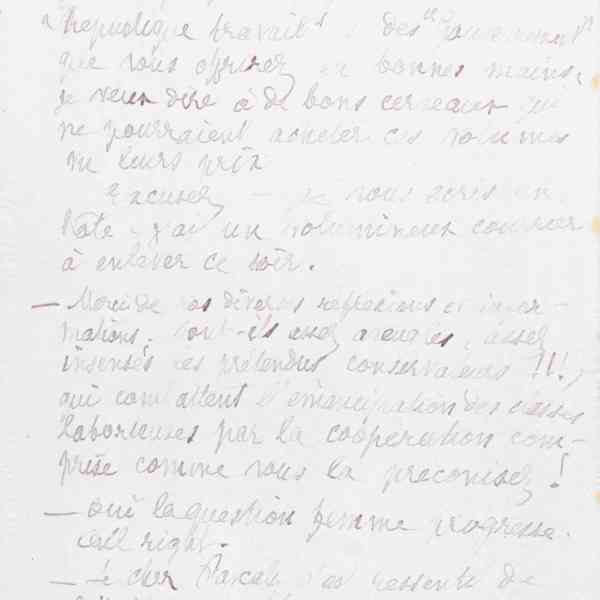 République travail : des
que vous offrirez en bonnes mains,
je veux dire à de bons cerveaux qui
ne pourraient acheter ces volumes
vu leurs prix
Excusez — je vous écris en
hâte – j'ai un volumineux courrier
à enlever ce soir.
— Merci de vos diverses réflexions et infor-
mations. Sont-ils assez aveugles, assez
insensés ces prétendus conservateurs !!!
qui combattent l'émancipation des classes
laborieuses par la coopération com-
prise comme vous la préconisez !
— oui la question femme progresse.
all right.
— Le cher Pascal s'est ressenti de